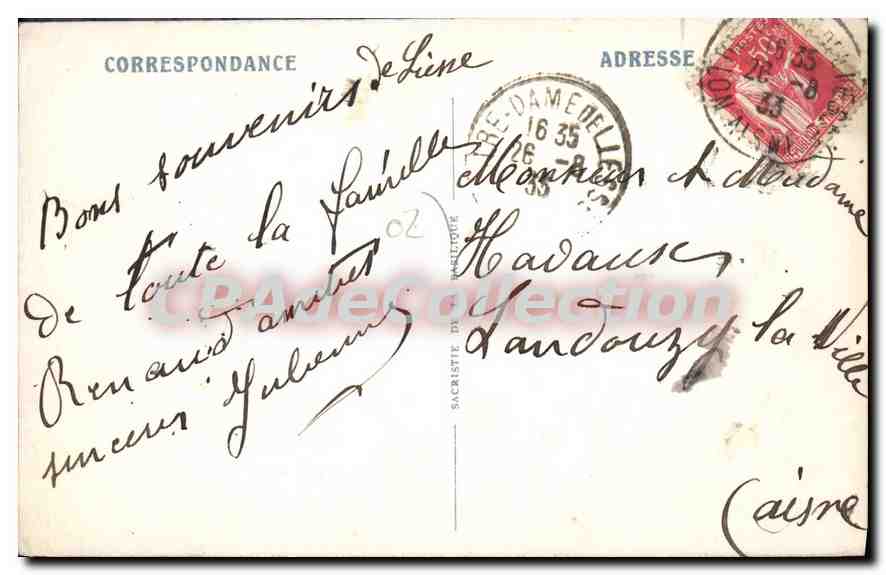 CORRESPONDANCE
Bons souvenirs de Liesse
de toute la famille
Renaud amitiés
sincères Julienne
02
SACRISTIE DE LA BASILIQUE
ADRESSE
NOTRE-DAME DE LIESSE
16 35
26 -8
33
POSTES 50c
16 35
26 -8
33
AISNE
Monsieur & Madame
Hadausse
Landouzy la Ville
(Aisne
CPAdeCollection